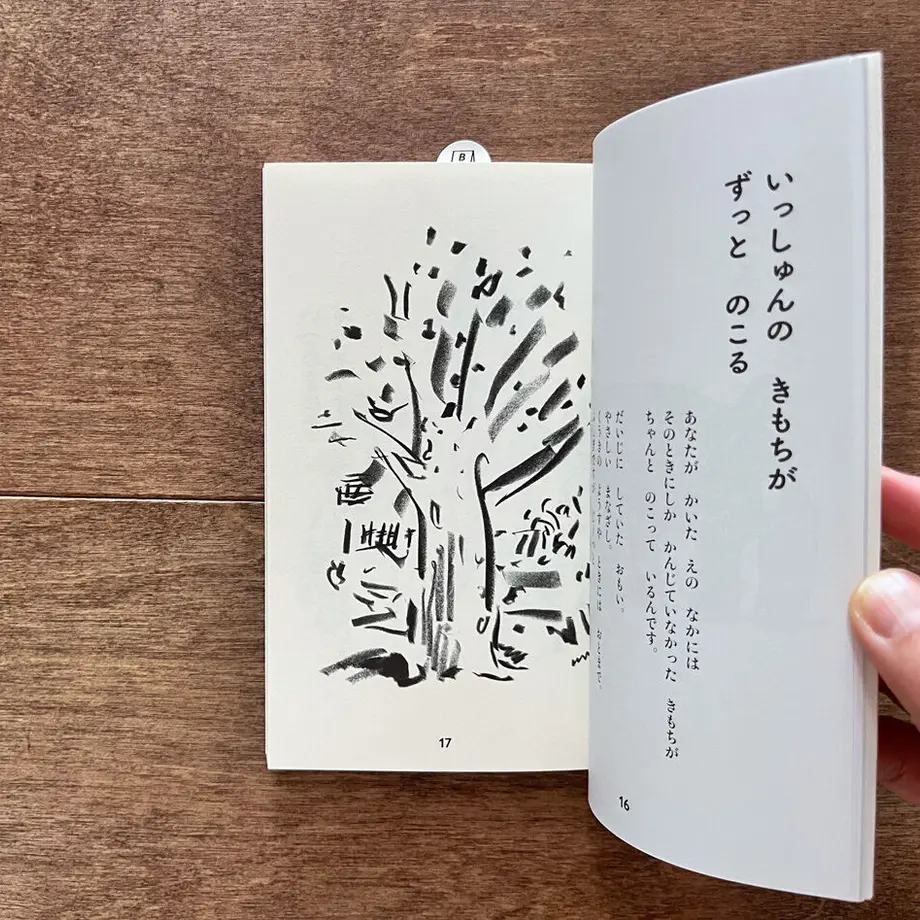 いっしゅんの　きもちが
ずっと　のこる
あなたが　かいた　えの　なかには
そのときにしか　かんじていなかった　きもちが
ちゃんと　のこって　いるんです。
だいじに　していた　おもい。
やさしい　まなざし。
くうきの　ようすや　ときには　おとまで。
16
17
B